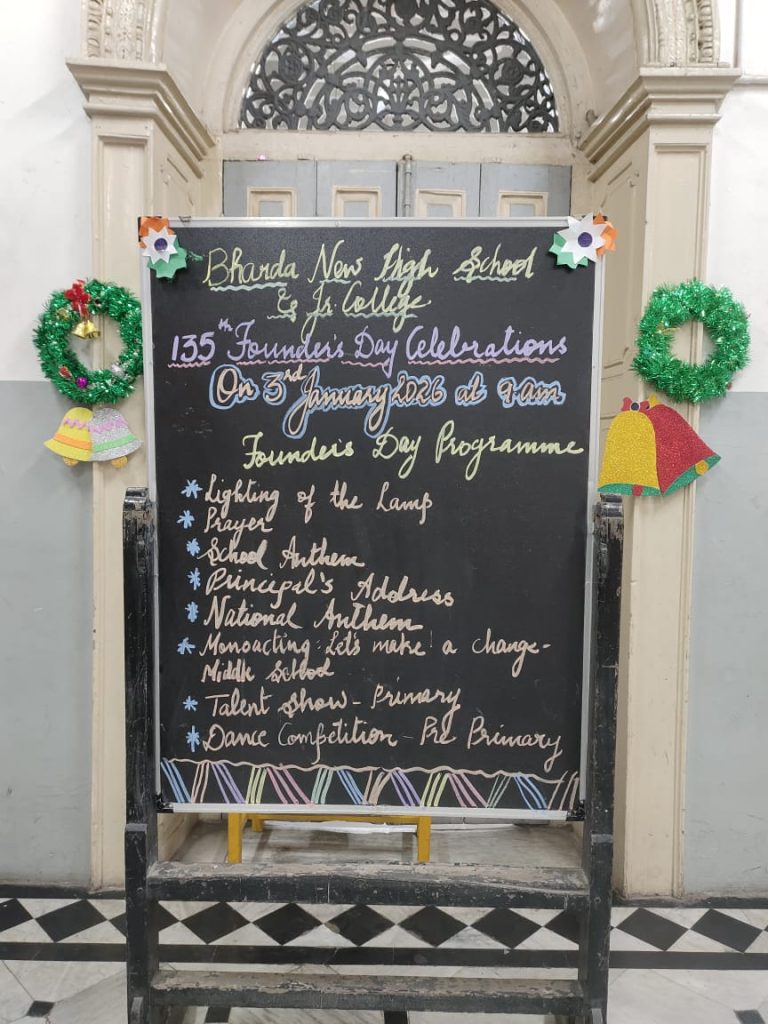 Bharda New High School
& Jr. College
135th Founder's Day Celebrations
On 3rd January 2026 at 9 am
Founder's Day Programme
* Lighting of the Lamp
* Prayer
* School Anthem
* Principal's Address
* National Anthem
* Monoacting: Let's make a change-
Middle School
* Talent Show - Primary
* Dance Competition - Pre Primary